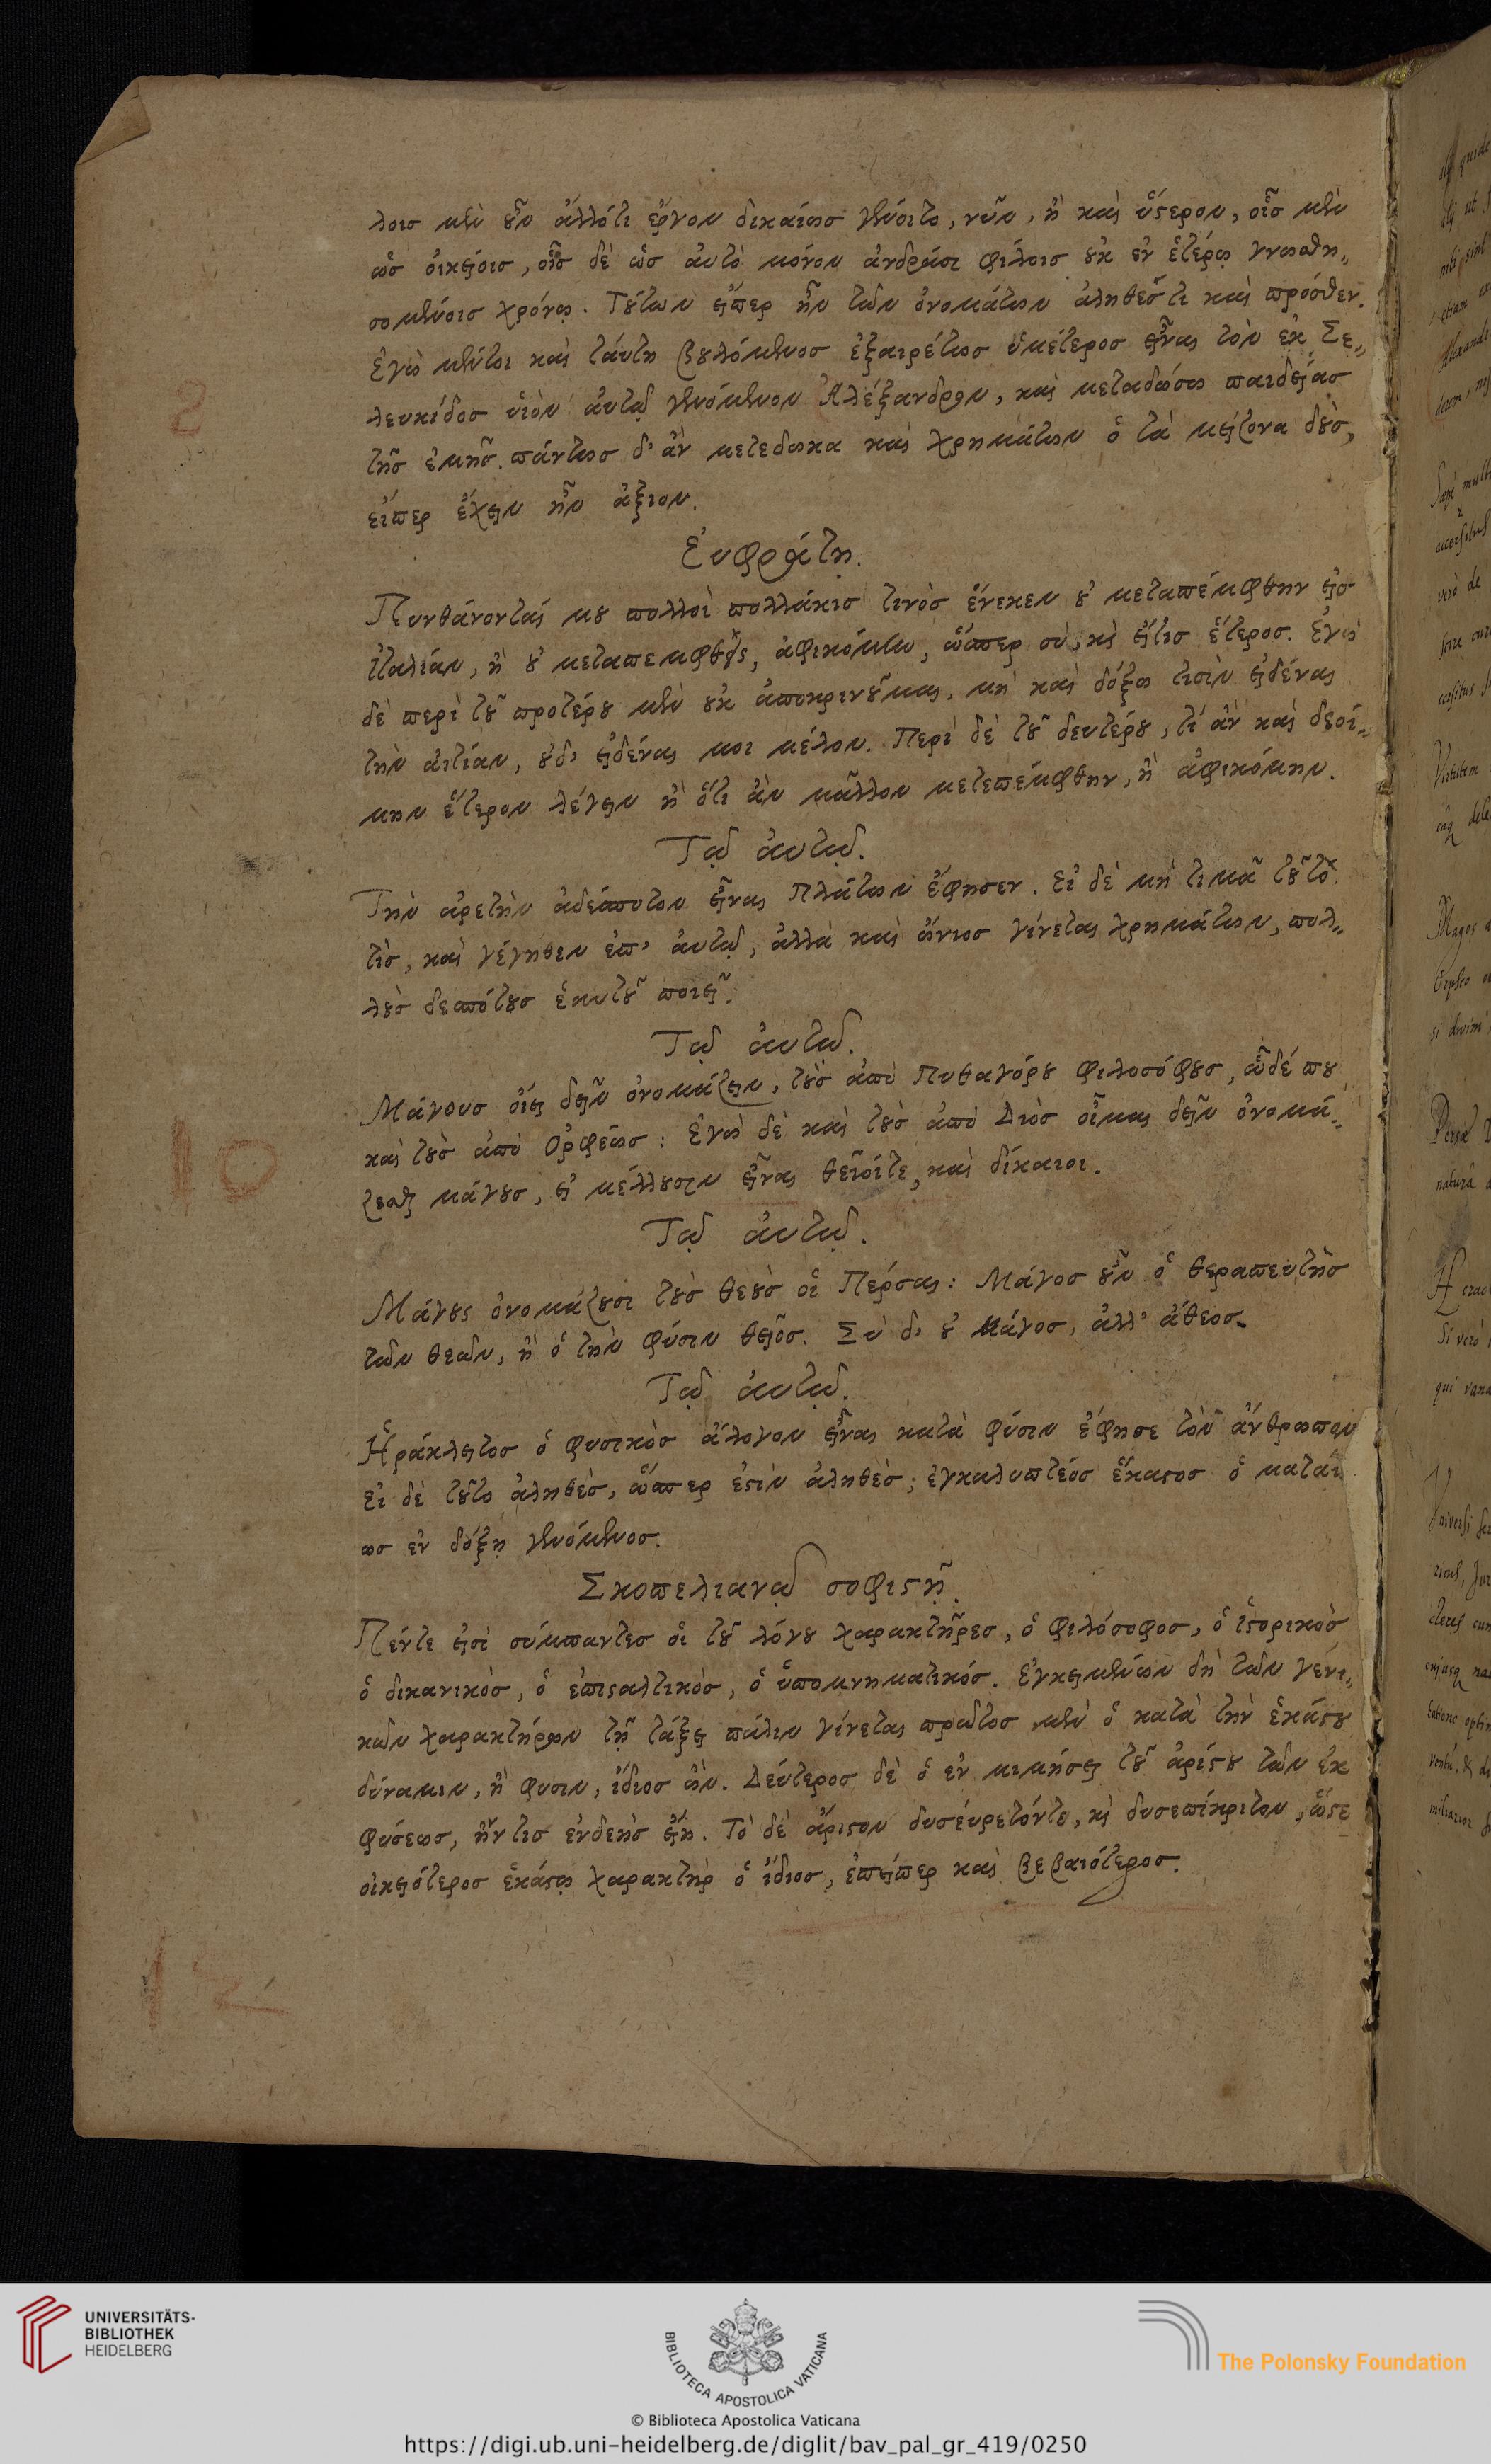 λοις μὲν οὖν ἀλλότι ἔργον δικαίως γένοιτο, νῦν, ἢ καὶ ὕστερον, οἷς μὲν
ὡς οἰκείοις, οἷς δὲ ὡς αὐτὸ μόνον ἀνδράσι φίλοις οὐκ ἐν ἑτέρῳ γνωσθη„
σομένοις χρόνῳ. Τούτων εἴπερ ἦν τῶν ὀνομάτων ἀληθέστι καὶ πρόσθεν.
Ἐγὼ μέντοι καὶ ταύτῃ βουλόμενος ἐξαιρέτως ὑμέτερος εἶναι τὸν ἐκ Σε„
λευκίδος υἱὸν αὐτῷ γενόμενον Ἀλέξανδρον, καὶ μεταδώσω παιδείας
τῆς ἐμῆς. πάντως δ' ἂν μετέδωκα καὶ χρημάτων ὁ τὰ μείζονα δοὺς,
εἴπερ ἔχειν ἦν ἄξιον.
Ἐυφράτῃ.
Πυνθάνονταί μου πολλοὶ πολλάκις τινὸς ἕνεκεν οὐ μεταπέμφθην εἰς
Ἰταλίαν, ἢ οὐ μεταπεμφθεὶς, ἀφικόμην, ὥσπερ σὺ, καὶ εἴτις ἕτερος. Ἐγὼ
δὲ περὶ τοῦ προτέρου μὲν οὐκ ἀποκρινοῦμαι, μὴ καὶ δόξω τισὶν εἰδέναι
τὴν αἰτίαν, οὐδ' εἰδέναι μοι μέλον. Περὶ δὲ τοῦ δευτέρου, τί ἂν καὶ δεοί„
μην ἕτερον λέγειν ἢ ὅτι ἂν μᾶλλον μετεπέμφθην, ἢ ἀφικόμην.
Τῷ ἀυτῷ.
Τὴν ἀρετὴν ἀδέσποτον εἶναι Πλάτων ἔφησεν. Εἰ δὲ μὴ τιμᾷ τοῦτό
τὶς, καὶ γέγηθεν ἐπ' ἀυτῷ, ἀλλὰ καὶ ὤνιος γίνεται χρημάτων, πολ„
λοὺς δεσπότους ἑαυτοῦ ποιεῖ.
Τῷ ἀυτῷ.
Μάγους οἴει δεῖν ὀνομάζειν, τοὺς ἀπὸ Πυθαγόρου φιλοσόφους, ὧδέ που
καὶ τοὺς ἀπὸ Ὀρφέως: Ἐγὼ δὲ καὶ τοὺς ἀπὸ Διὸς οἶμαι δεῖν ὀνομά„
ζεσθαι μάγους, εἰ μέλλουσιν εἶναι θεῖοίτε, καὶ δίκαιοι.
Τῷ ἀυτῷ.
Μάγους ὀνομάζουσι τοὺς θεοὺς οἱ Πέρσαι: Μάγος οὖν ὁ θεραπευτὴς
τῶν θεῶν, ἢ ὁ τὴν φύσιν θεῖος. Σὺ δ' οὐ μάγος, ἀλλ' ἄθεος.
Τῷ ἀυτῷ.
Ἡράκλειτος ὁ φυσικὸς ἄλογον εἶναι κατὰ φύσιν ἔφησε τὸν ἄνθρωπον
Εἰ δὲ τοῦτο ἀληθὲς, ὥσπερ ἐστὶν ἀληθὲς; ἐγκαλυπτέος ἕκαστος ὁ ματαί
ως ἐν δόξῃ γενόμενος.
Σκοπελιανῷ σοφιστῇ.
Πέντε εἰσὶ σύμπαντες οἱ τοῦ λόγου χαρακτῆρες, ὁ φιλόσοφος, ὁ ἱστορικὸς
ὁ δικανικὸς, ὁ ἐπισταλτικὸς, ὁ ὑπομνηματικός. Ἐγκειμένων δὴ τῶν γενι„
κῶν χαρακτήρων τῇ τάξει πάλιν γίνεται πρῶτος μὲν ὁ κατὰ τὴν ἑκάστου
δύναμιν, ἢ φυσιν, ἴδιος ὢν. Δεύτερος δὲ ὁ ἐν μιμήσει τοῦ ἀρίστου τῶν ἐκ
φύσεως, ἤν τις ἐνδεὴς εἴη. Τὸ δὲ ἄριστον δυσέυρετόντε, καὶ δυσεπίκριτον, ὥστε
οἰκειότερος ἑκάστῳ χαρακτὴρ ὁ ἴδιος, ἐπείπερ καὶ βεβαιότερος.
8
10
12
UNIVERSITÄTS-
BIBLIOTHEK
HEIDELBERG
BIBLIOTECA APOSTOLICA VATICANA
The Polonsky Foundation
© Biblioteca Apostolica Vaticana
https://digi.ub.uni-heidelberg.de/diglit/bav_pal_gr_419/0250